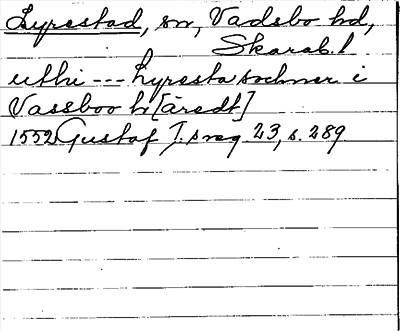 Lyrestad, sn, Vadsbo hd,
Skarab. l
uthi --- Lyresta sochner i
Vassboo h[äredt]
1552 Gustaf I:s reg 23, s. 289.